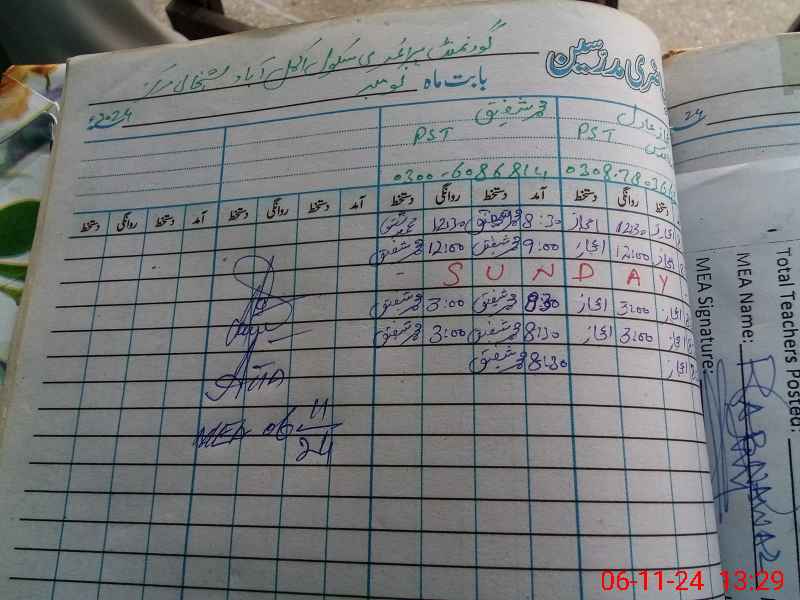 گورنمنٹ پرائمری سکول اکمل آباد
بابت ماہ نومبر 2024ء
حاضری مدرسین
24
محمد شفیق
PST PST
0300-6086814 0308-78036
دستخط روانگی دستخط آمد دستخط روانگی دستخط آمد دستخط روانگی دستخط آمد دستخط روانگی دستخط
محمد شفیق 12:30 محمد شفیق 8:30 اعجاز 12:30 اعجاز
محمد شفیق 12:00 محمد شفیق 9:00 اعجاز 12:00 اعجاز
- SUNDAY
محمد شفیق 3:00 محمد شفیق 8:30 اعجاز 3:00 اعجاز
محمد شفیق 3:00 محمد شفیق 8:30 اعجاز 3:00 اعجاز
محمد شفیق 8:30 اعجاز
MEA 06 11/24
Total Teachers Posted:
MEA Name: RABNAWAZ
MEA Signature:
06-11-24 13:29